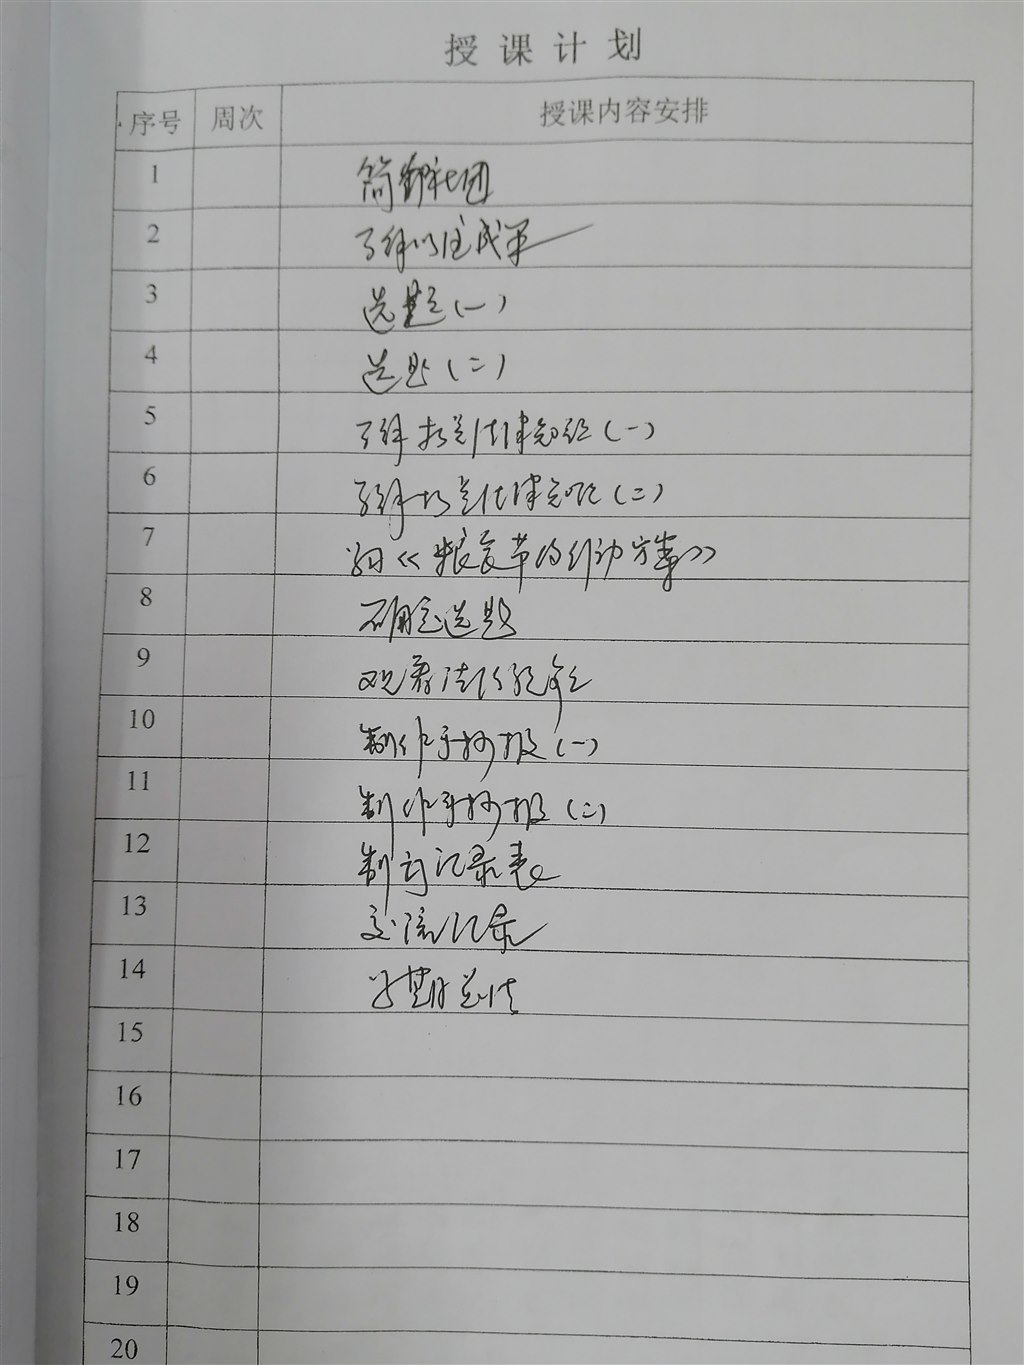 授课计划
序号 周次 授课内容安排
1 简介社团
2 了解以往成果
3 选题(一)
4 选题(二)
5 了解相关法律知识(一)
6 了解相关法律知识(二)
7 《粮食节约行动方案》
8 确定选题
9 观看法治
10 制作手抄报(一)
11 制作手抄报(二)
12 制订记录表
13 交流记录
14 学期总结
15
16
17
18
19
20